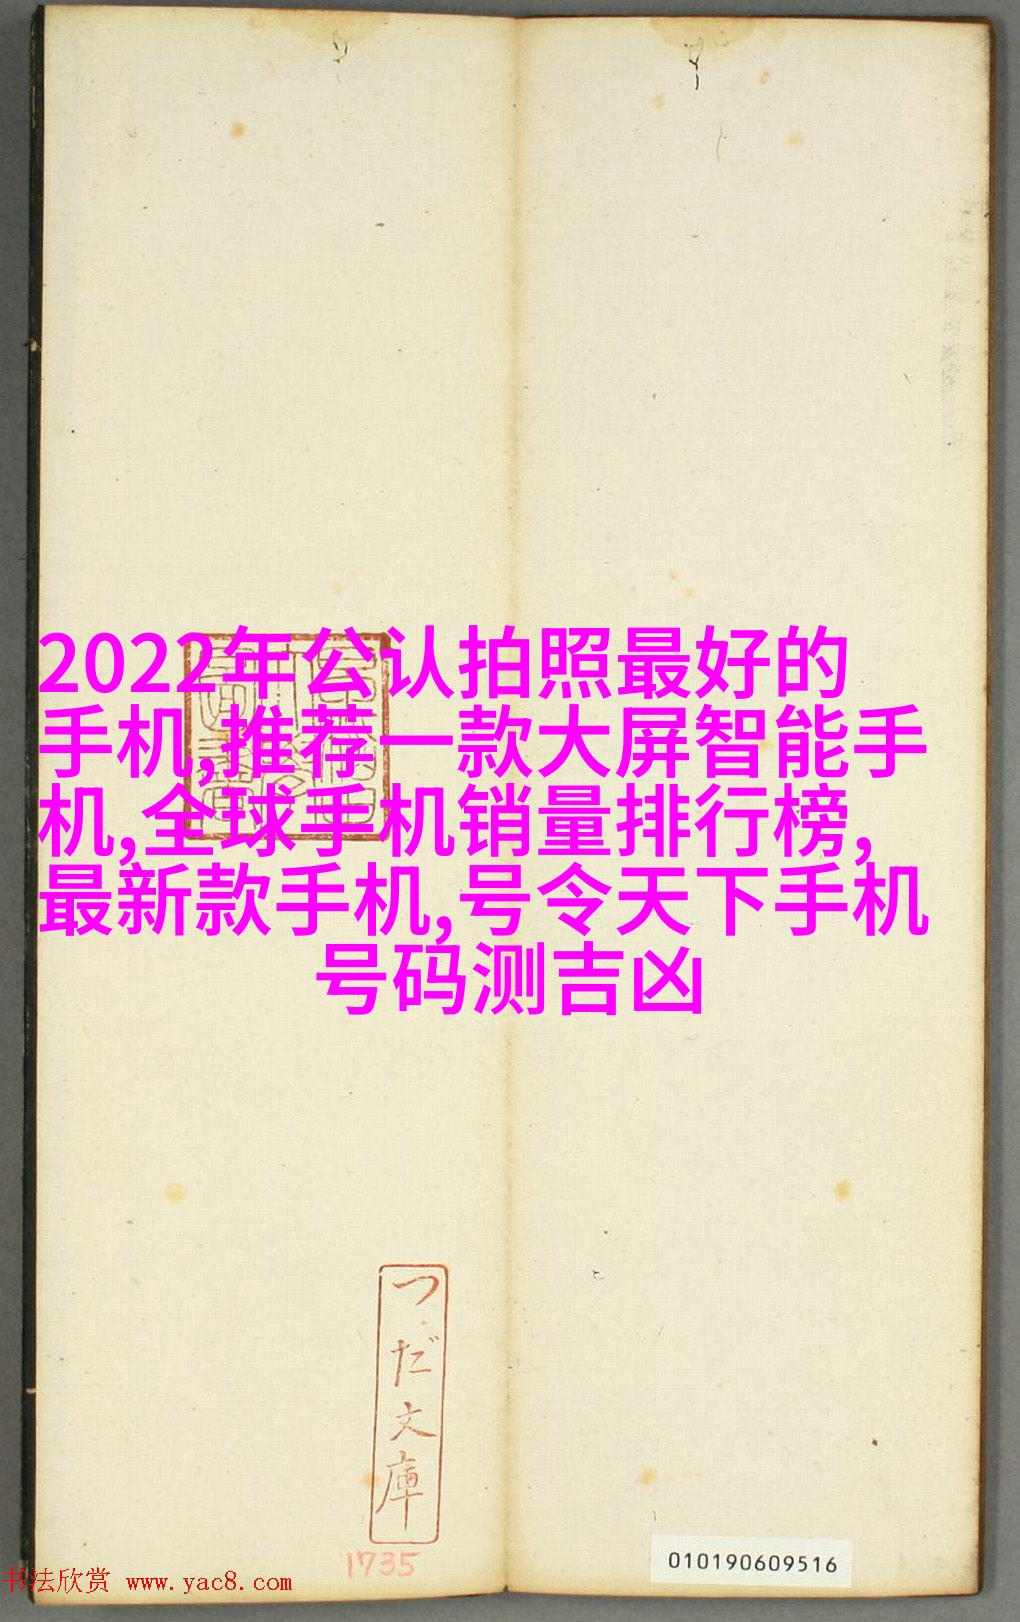 2022年公认拍照最好的
手机,推荐一款大屏智能手
机,全球手机销量排行榜,
最新款手机,号令天下手机
号码测吉凶
つだ文庫
1735
010190609516
书法欣赏 www.yac8.com